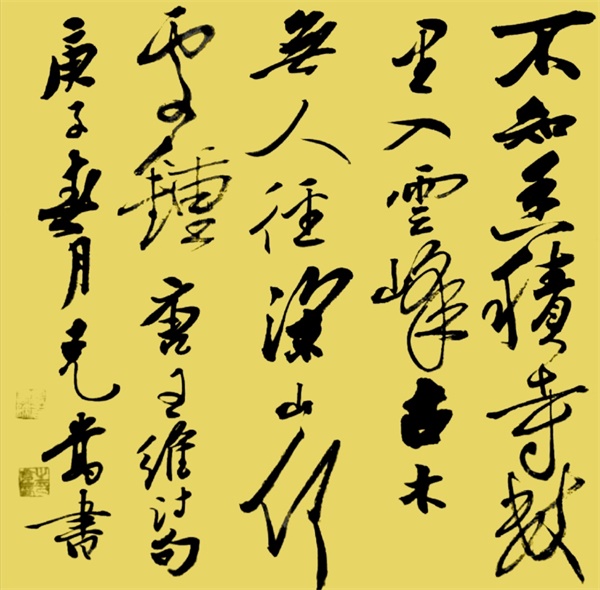 不知香積寺數
里入雲峰古木
無人徑深山何
處鐘 唐王維詩句
庚子春月克嵩書